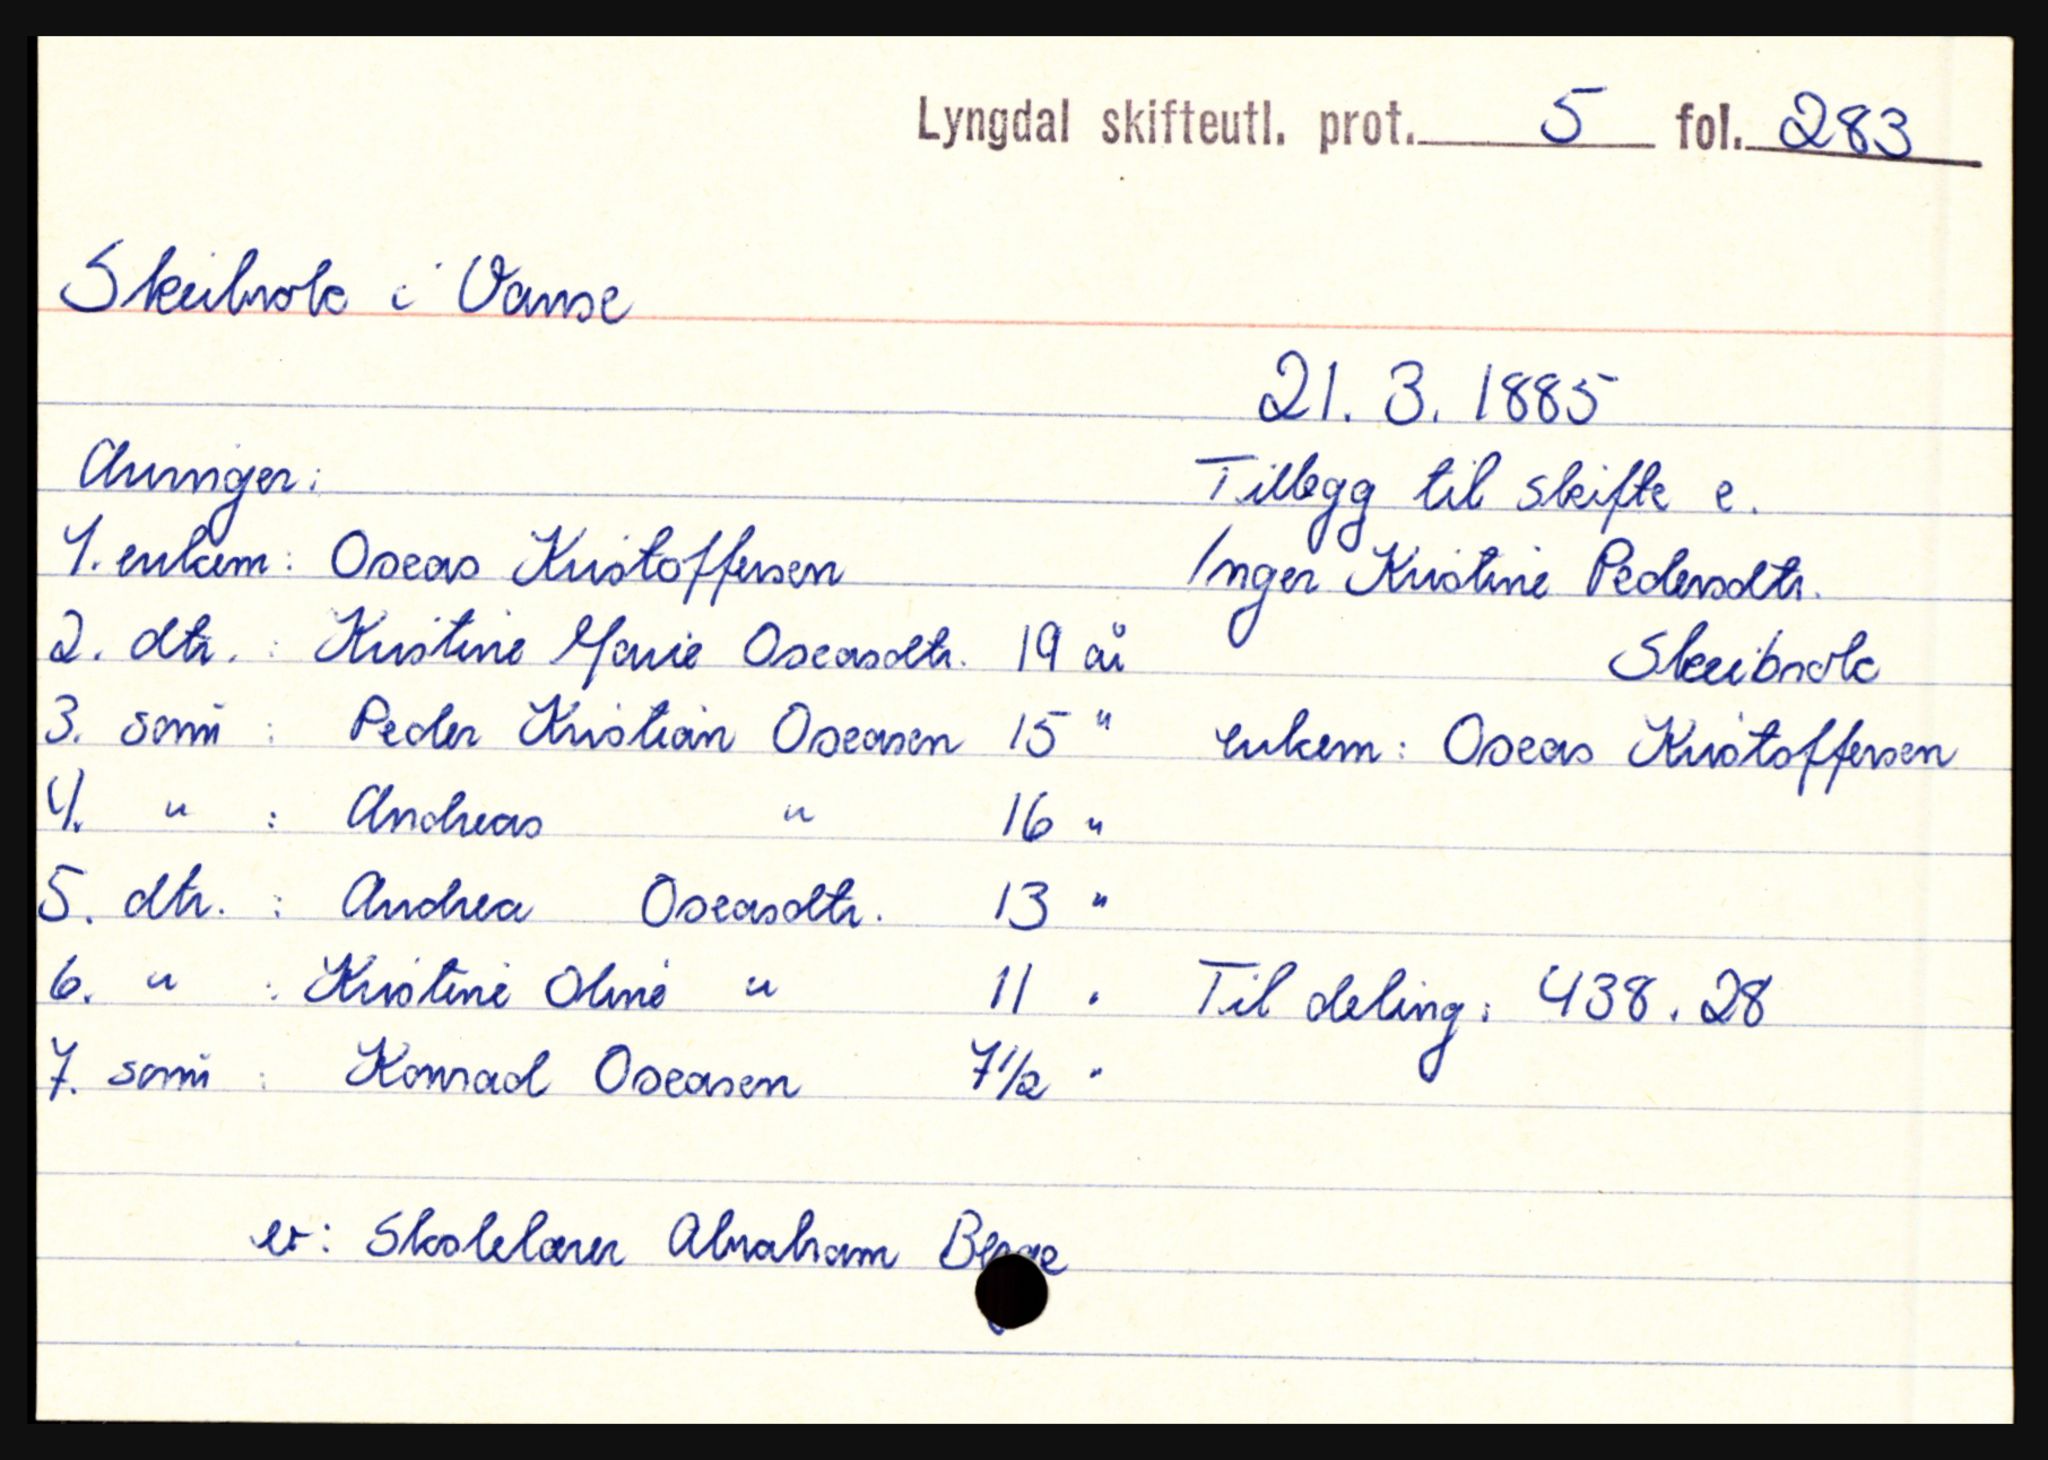 Lyngdal skifteutl. prot. 5 fol. 283
Skeibrok i Vanse
21. 3. 1885
Arvinger:
Tillegg til skifte e.
1. enkem: Oseas Kristoffersen
Inger Kristine Pedersdtr.
2. dtr. : Kristine Marie Oseasdtr. 19 år
Skeibrok
3. sønn : Peder Kristian Oseasen 15 "
enkem: Oseas Kristoffersen
4. " : Andreas " 16 "
5. dtr. : Andrea Oseasdtr. 13 "
6. " : Kristine Oline " 11 "
Til deling: 438.28
7. sønn : Konrad Oseasen 7 1/2 "
ev: Skolelærer Abraham Berge